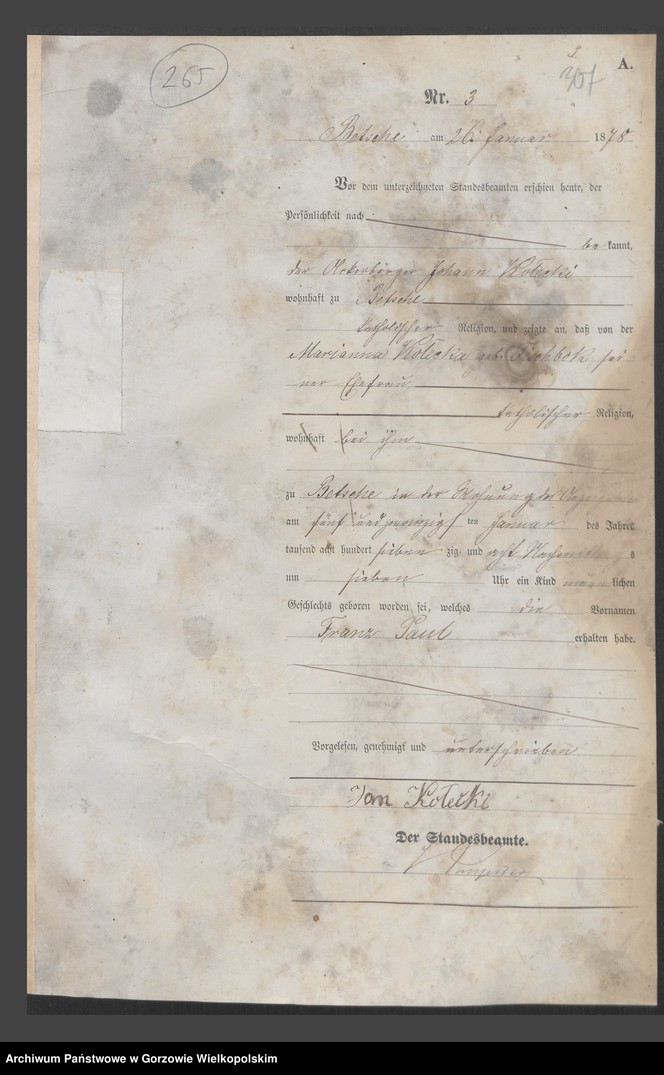 265
3.
307
A.
Nr. 3
Betsche am 26 Januar 1878
Vor dem unterzeichneten Standesbeamten erschien heute, der
Persönlichkeit nach
be kannt,
der Ackerbürger Johann Kolecki
wohnhaft zu Betsche
katholischer Religion, und zeigte an, daß von der
Marianna Kolecka geb. sei-
ner Ehefrau
katholischer Religion,
wohnhaft bei ihm
zu Betsche in der Wohnung des
am fünf und zwanzigsten Januar des Jahres
tausend acht hundert sieben zig und acht Nachmittags
um sieben Uhr ein Kind männlichen
Geschlechts geboren worden sei, welches die Vornamen
Franz Paul erhalten habe.
Vorgelesen, genehmigt und unterschrieben
Jan Kołecki
Der Standesbeamte.
Archiwum Państwowe w Gorzowie Wielkopolskim